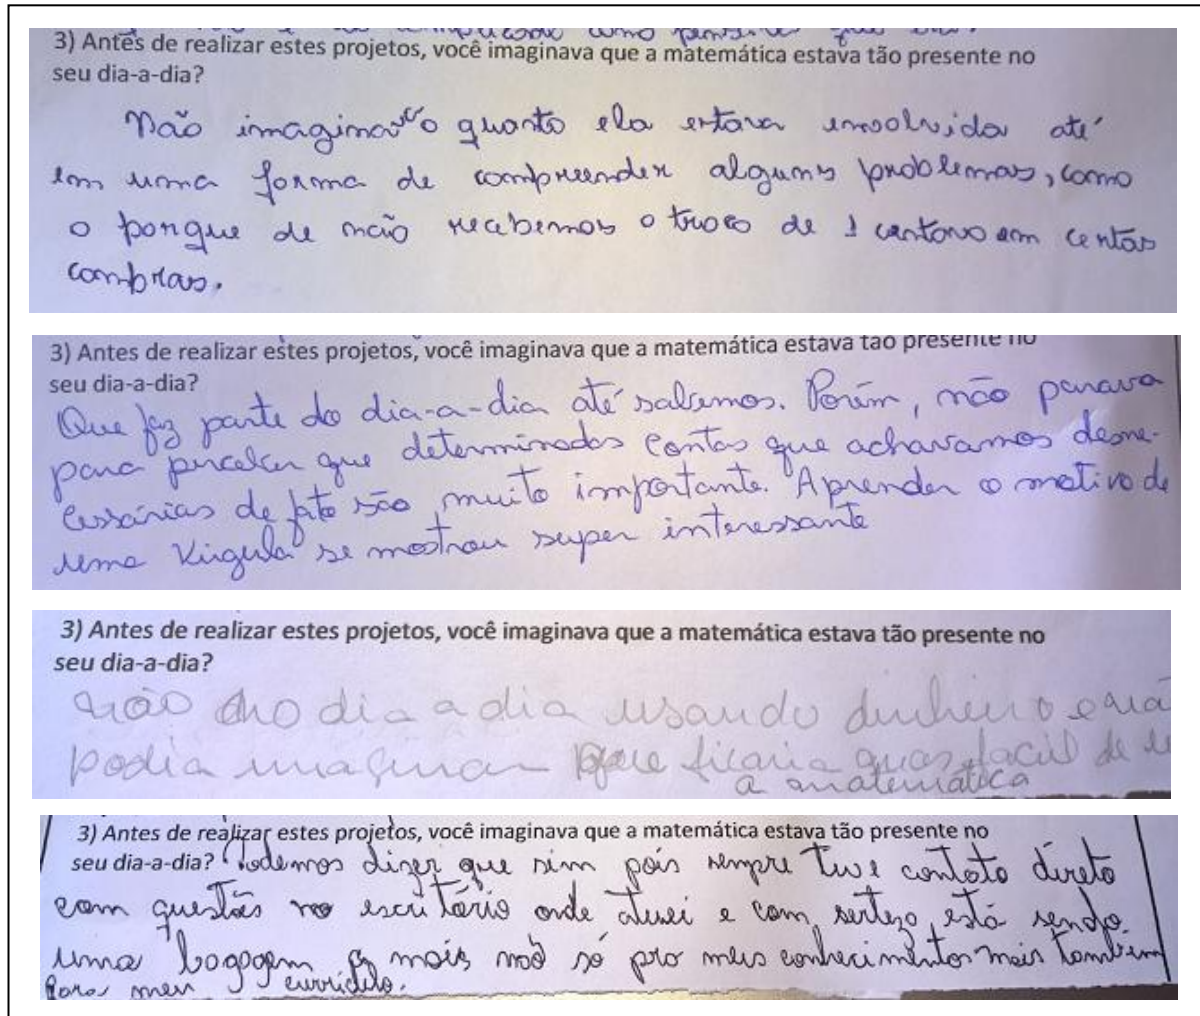 3) Antes de realizar estes projetos, você imaginava que a matemática estava tão presente no
seu dia-a-dia?
Não imaginava o quanto ela estava envolvida até
em uma forma de compreender alguns problemas, como
o porque de não recebemos o troco de 1 centavo em certas
compras.
3) Antes de realizar estes projetos, você imaginava que a matemática estava tão presente no
seu dia-a-dia?
Que faz parte do dia-a-dia até sabemos. Porém, não parava
para perceber que determinadas contas que achavamos desne-
cessárias de fato são muito importante. Aprender o motivo de
uma vírgula se mostrou super interessante
3) Antes de realizar estes projetos, você imaginava que a matemática estava tão presente no
seu dia-a-dia?
não no dia a dia usando dinheiro e não
podia imaginar que ficaria mas facil de
a matemática
3) Antes de realizar estes projetos, você imaginava que a matemática estava tão presente no
seu dia-a-dia? Podemos dizer que sim pois sempre tive contato direto
com questões no escritório onde atuei e com serteza está sendo
uma bagagem a mais não só pro meus conhecimentos mais também
para meu curriculo.